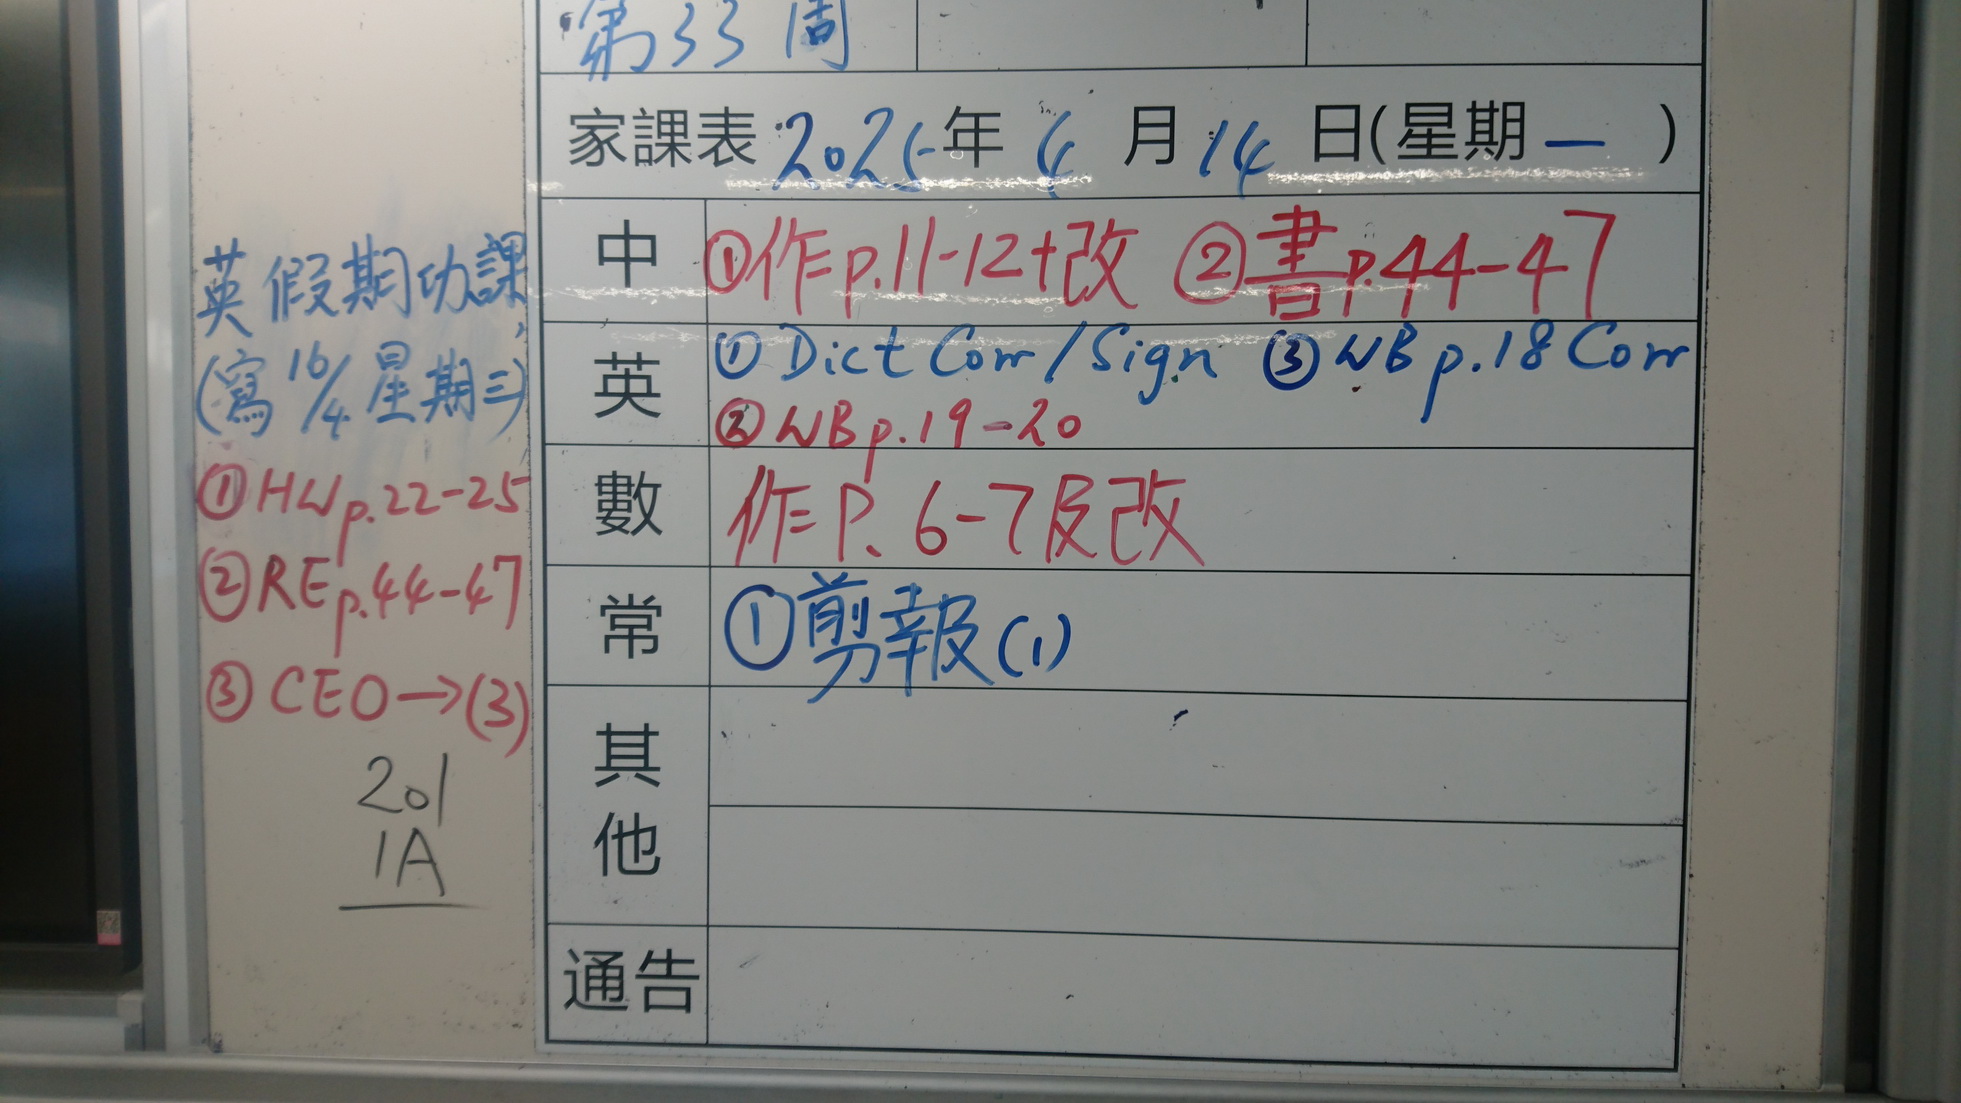 第33周
家課表 2025年4月14日(星期一)
中 ①作p.11-12+改 ②書p.44-47
英 ①Dict Corr/Sign ③WB p.18 Corr
②WB p.19-20
數 作P. 6-7及改
常 ①剪報(1)
其他
通告
英假期功課
(寫16/4星期三)
①HW p.22-25
②RE p.44-47
③CEO→(3)
201
1A